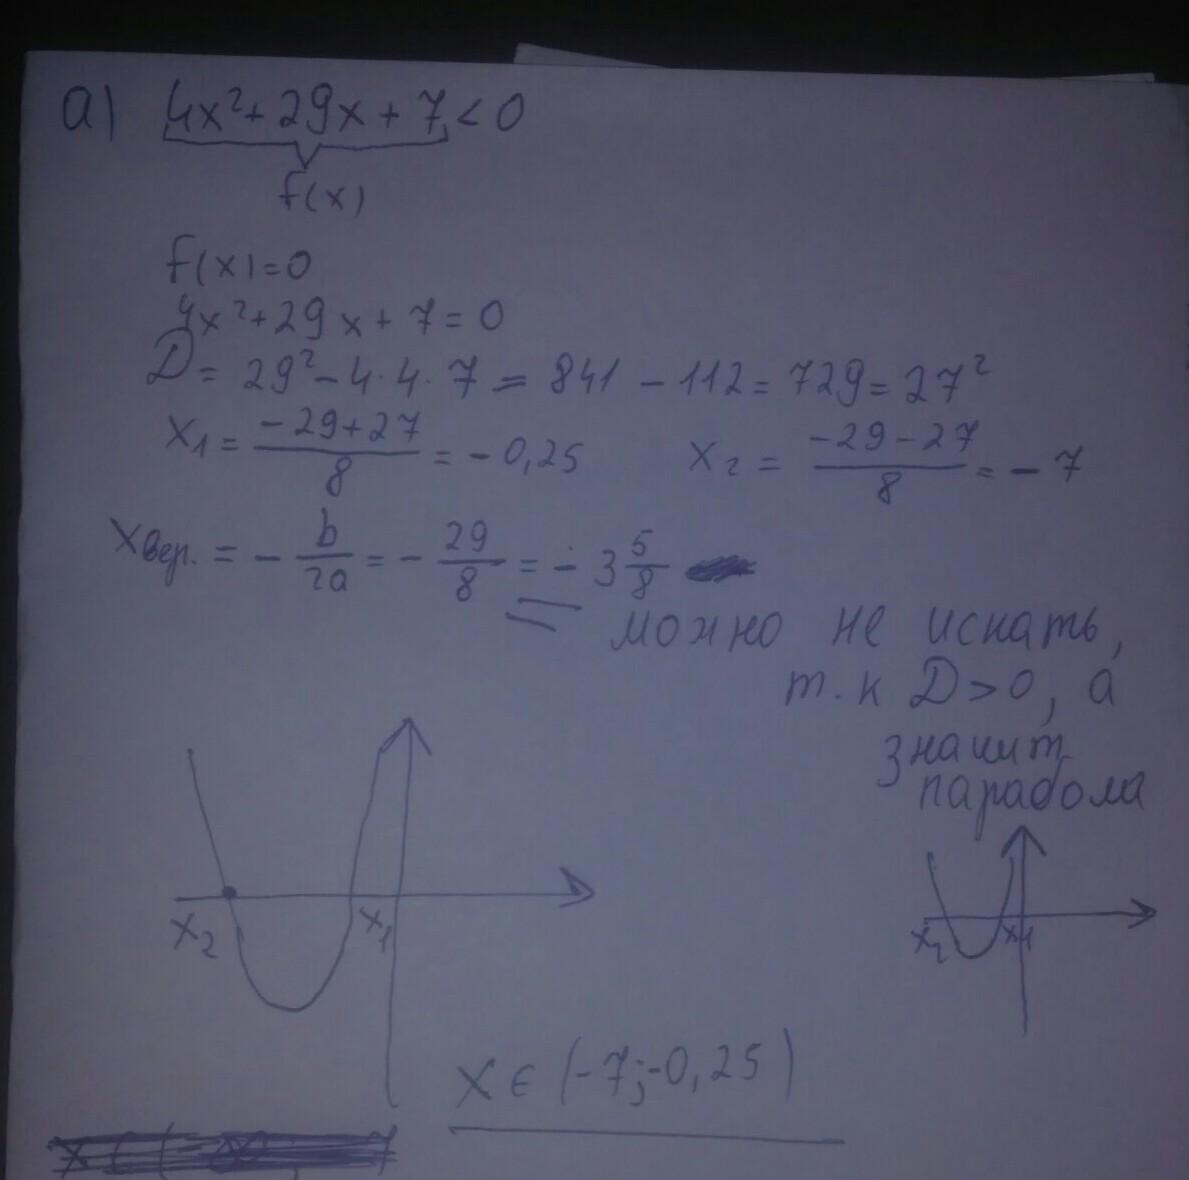 а) 4x²+29x+7<0
f(x)
f(x)=0
4x²+29x+7=0
D=29²-4·4·7=841-112=729=27²
x₁=(-29+27)/8=-0,25 x₂=(-29-27)/8=-7
xвер.=-b/2a=-29/8=-3 5/8
можно не искать,
т.к D>0, а
значит
парабола
x₂ x₁
x₂ x₁
x∈(-7;-0,25)